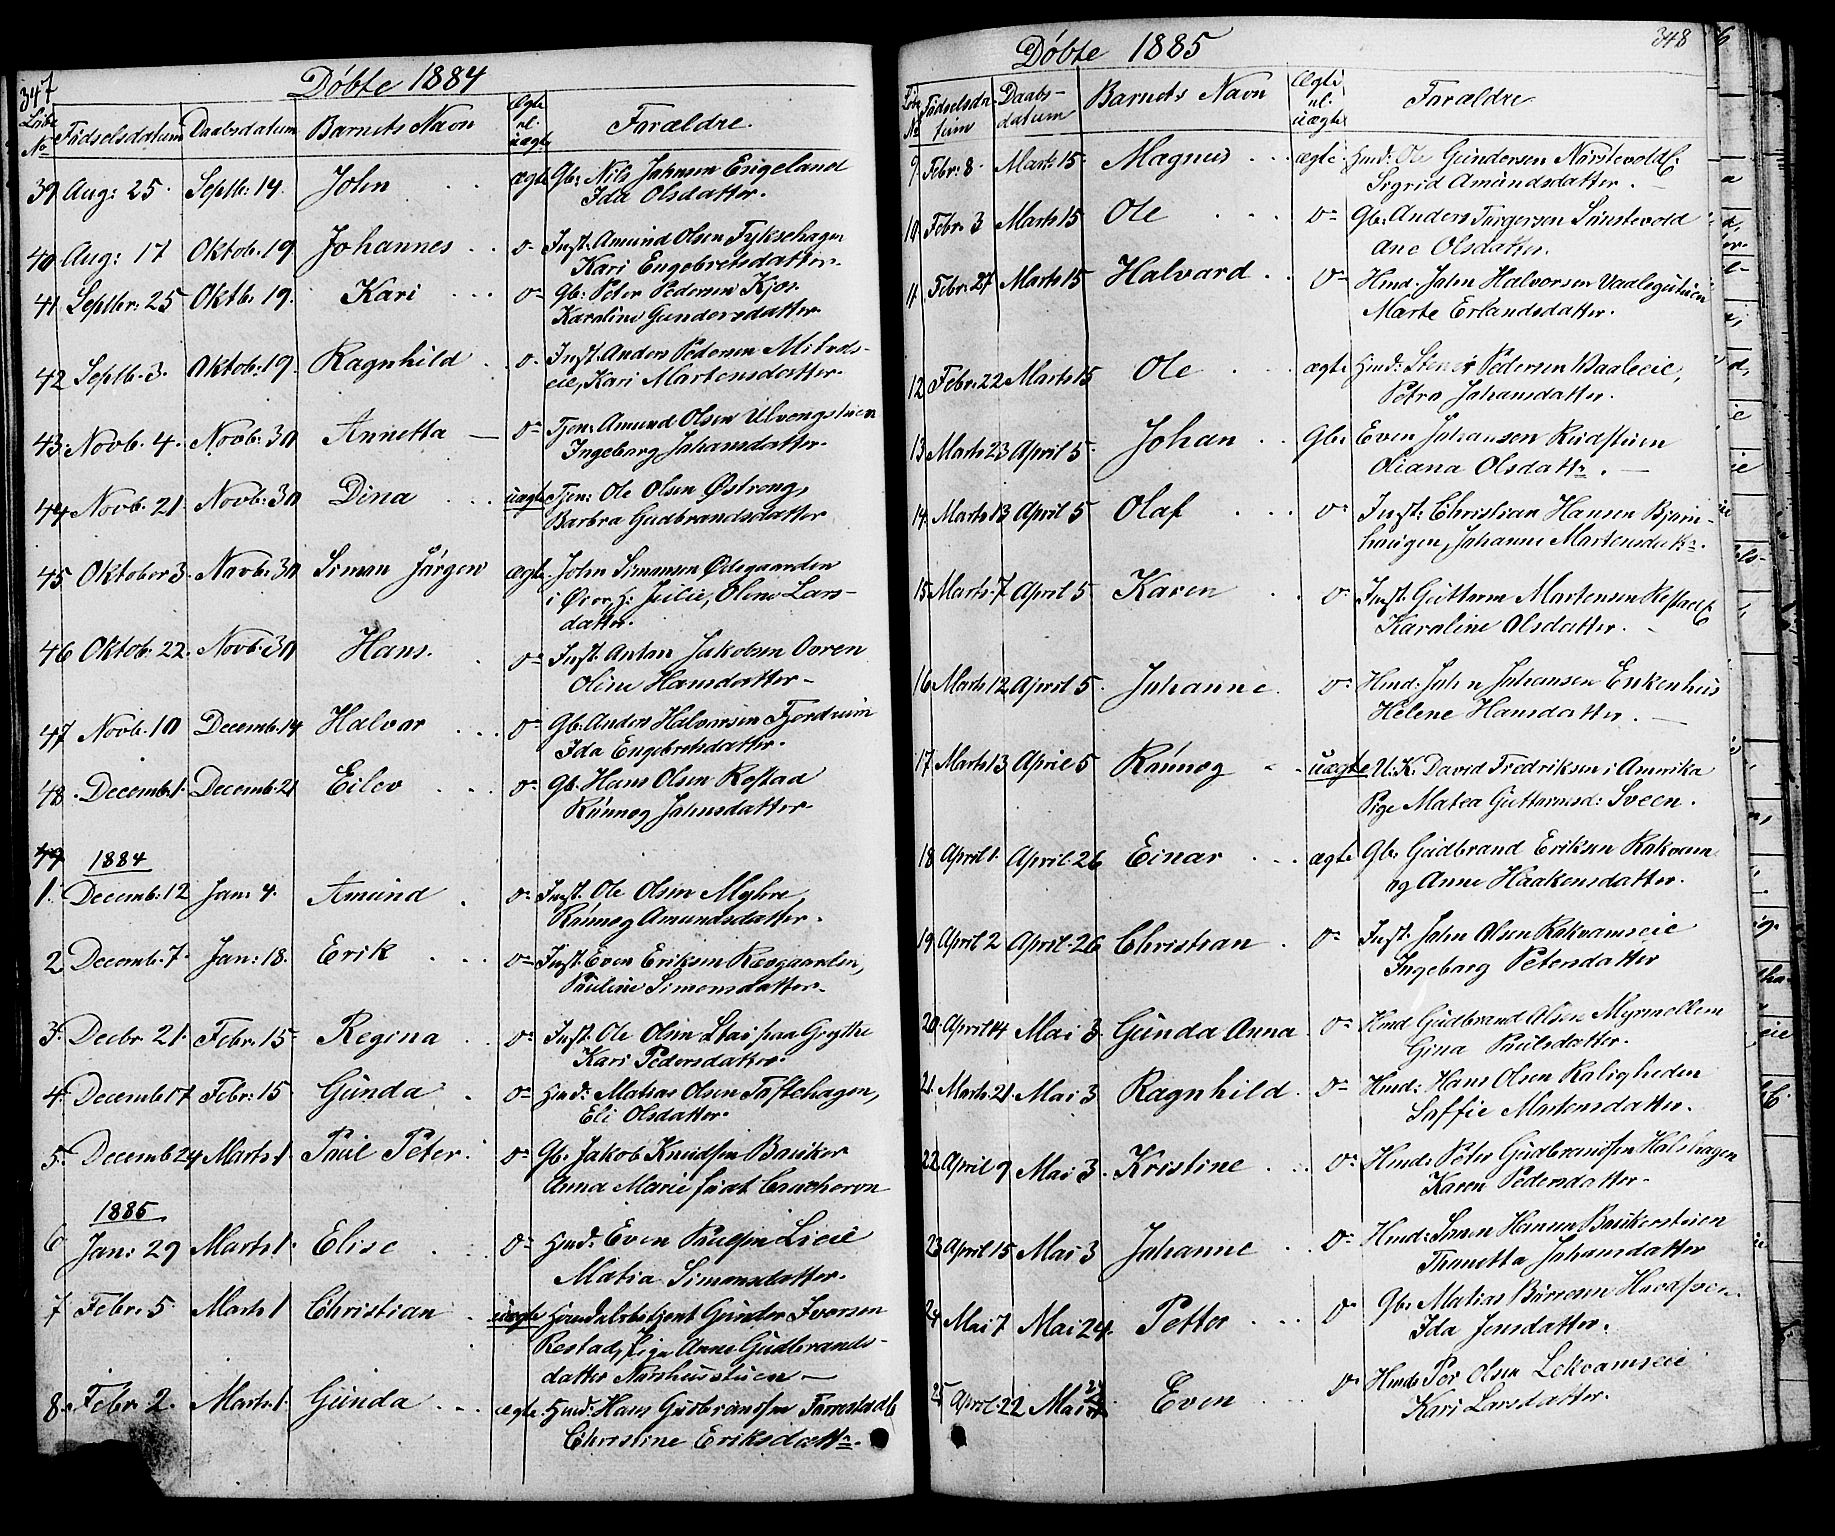 347
Döbte 1884
Löbe No Födselsdatum Daabsdatum Barnets Navn Ægte el. uægte Forældre.
39 Aug: 25. Septb: 14. John ægte Gb: Nils Johnsen Engeland
Ida Olsdatter.
40 Aug: 17 Oktob. 19. Johannes Do Inst. Amund Olsen Fyksehagen
Kari Engebretsdatter.
41 Septbr: 25 Oktb. 19. Kari Do Gb: Peter Pedersen Kjos.
Karoline Gundersdatter
42 Septb. 3. Oktob: 19. Ragnhild Do Inst. Anders Pedersen
eie, Kari Martensdatter.
43. Novb. 4. Novb: 30 Annetta Do Tjen: Amund Olsen Ulvengstuen
Ingeborg Johansdatter.
44 Novb. 21. Novb: 30 Dina uægte Tjen: Ole Olsen Østreng,
Barbra Gudbrandsdatter
45 Oktober 3. Novb: 30 Simon Jörgen ægte. John Simonsen Ødegaarden
i Øier, h: Julie, Oline Lars-
datter.
46 Oktob: 22. Novb. 30 Hans. Do Inst. Anton Jakobsen Ovren
Oline Hansdatter
47 Novb. 10 Decemb. 14 Halvar Do Gb. Anders Halvorsen Fjerdrum
Ida Engebretsdatter.
48. Decemb. 1. Decemb. 21 Eilev Do Gb. Hans Olsen Rostad
Rönnog Johnsdatter
49 1884
1. Decemb: 12 Jan: 4. Amund Do Inst. Ole Olsen Myhre,
Rönnog Amundsdatter.
2 Decemb. 7. Jan: 18. Erik Do Inst. Even Eriksen
Pauline Simensdatter.
3. Decbr 21. Febr. 15 Regina Do Inst. Ole Olsen Stai paa Grythe
Kari Pedersdatter
4. Decemb 17 Febr: 15 Gunda Do Hmd: Matias Olsen Toftehagen,
Eli Olsdatter.
5. Decemb 24 Marts. 1 Paul Peter. Do Gb. Jakob Knudsen Bauker
Anna Marie født
1885
6 Jan: 29 Marts 1. Elise Do Hmd: Even Paulsen Lieie
Matia Simonsdatter.
7 Febr. 5 Marts 1 Christian uægte Gunder Iversen
Rostad, Pige Anne Gudbrands-
datter
8. Febr 2. Marts. 1. Gunda ægte. Hmd: Hans Gudbrandsen
Christine Eriksdattr.
348
Döbte 1885
Löbe No Födselsda- tum Daabs- datum Barnets Navn Ægte el. uægte Forældre
9 Febr: 8. Marts 15. Magnus ægte. Hmd: Ole Gundersen
Sigrid Amundsdatter.
10 Febr. 3 Marts 15 Ole Do Gb: Anders Torgersen Sönstevold
Ane Olsdatter.
11 Febr. 27 Marts 15 Halvard Do Hmd: John Halvorsen
Marte Erlandsdatter.
12 Febr. 22 Marts 15 Ole ægte Hmd: Stener Pedersen
Petra Johansdatter.
13 Marts 23 April 5. Johan Gb: Even Johansen Rudstuen
Oliana Olsdattr.
14. Marts 13 April 5 Olaf Do Inst: Christian Hansen Bjørn-
haugen, Johanne Martensdattr.
15 Marts 7 April 5 Karen Do Inst: Guttorm Martensen
Karoline Olsdatter.
16 Marts 12 April 5. Johanne Do Hmd: John Johansen Enkenhus
Helene Hansdatter.
17 Marts 13 April 5 Rönnog uægte U. K. David Fredriksen i Amerika
Pige Matea Guttormsd: Sveen.
18 April 1. April 26 Einar ægte Gb. Gudbrand Eriksen Rokvam
og Anne Haakensdatter.
19 April 2 April. 26 Christian Do Inst: John Olsen Rokvamseie
Ingeborg Petersdatter
20. April 14 Mai 3. Gunda Anna Do Hmd Gudbrand Olsen Myrmollem
Gina Paulsdatter.
21. Marts. 21. Mai 3 Ragnhild. Do Hmd: Hans Olsen Roligheden
Soffie Martensdatter.
22. April 9 Mai 3. Kristine Do Hmd: Peter Gudbrandsen Holshagen
Karen Pedersdatter.
23 April 15 Mai 3 Johanne Do Hmd: Simen Hansen Baukerstuen
Thonetta Johansdatter
24 Mai 7 Mai 24. Petter Do Gb: Matias Börresen
Ida Jensdatter.
25 April. 22 Mai 24 Even Do Hmd: Per Olsen Lekvamseie
Kari Larsdatter.